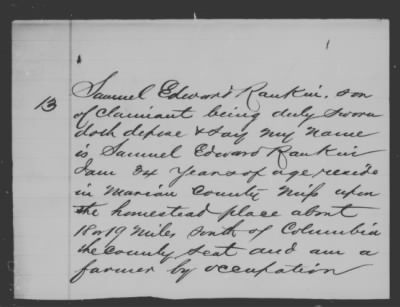 Samuel Edward Rankin, son
13
of claimant being duly sworn
doth depose & say my name
is Samuel Edward Rankin
I am 34 years of age reside
in Marion County Miss upon
the homestead place about
18 or 19 miles south of Columbia
the county seat and am a
farmer by occupation